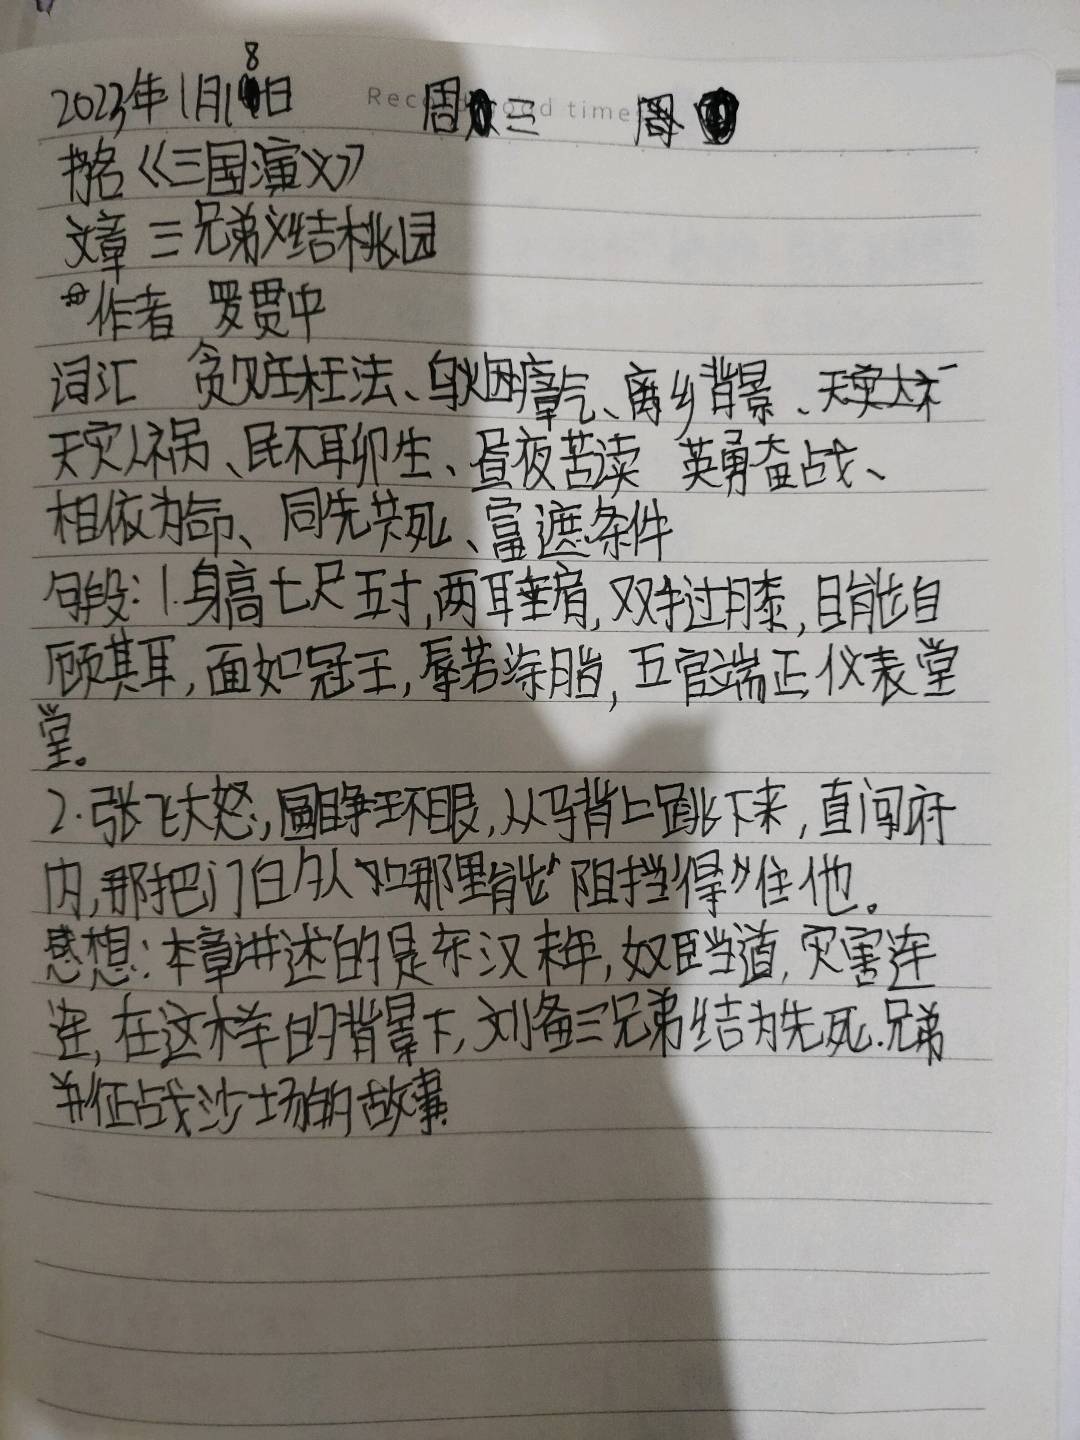 2023年1月18日 周三
Record good time
书名《三国演义》
文章 三兄弟义结桃园
作者 罗贯中
词汇 贪赃枉法、乌烟瘴气、离乡背景、
天灾人祸、民不聊生、昼夜苦读 英勇奋战、
相依为命、同先共死、富遮条件
句段:1.身高七尺五寸,两耳垂肩,双手过膝,目能自
顾其耳,面如冠王,辱若涂脂,五官端正 仪表堂
堂。
2.张飞大怒,圆睁环眼,从马背上跳下来,直闯府
内,那把门白勺人“口那里能”阻挡“得”住他。
感想:本章讲述的是东汉末年,奴臣当道,灾害连
连,在这样的背景下,刘备三兄弟结为先死兄弟
并征战沙场的故事.